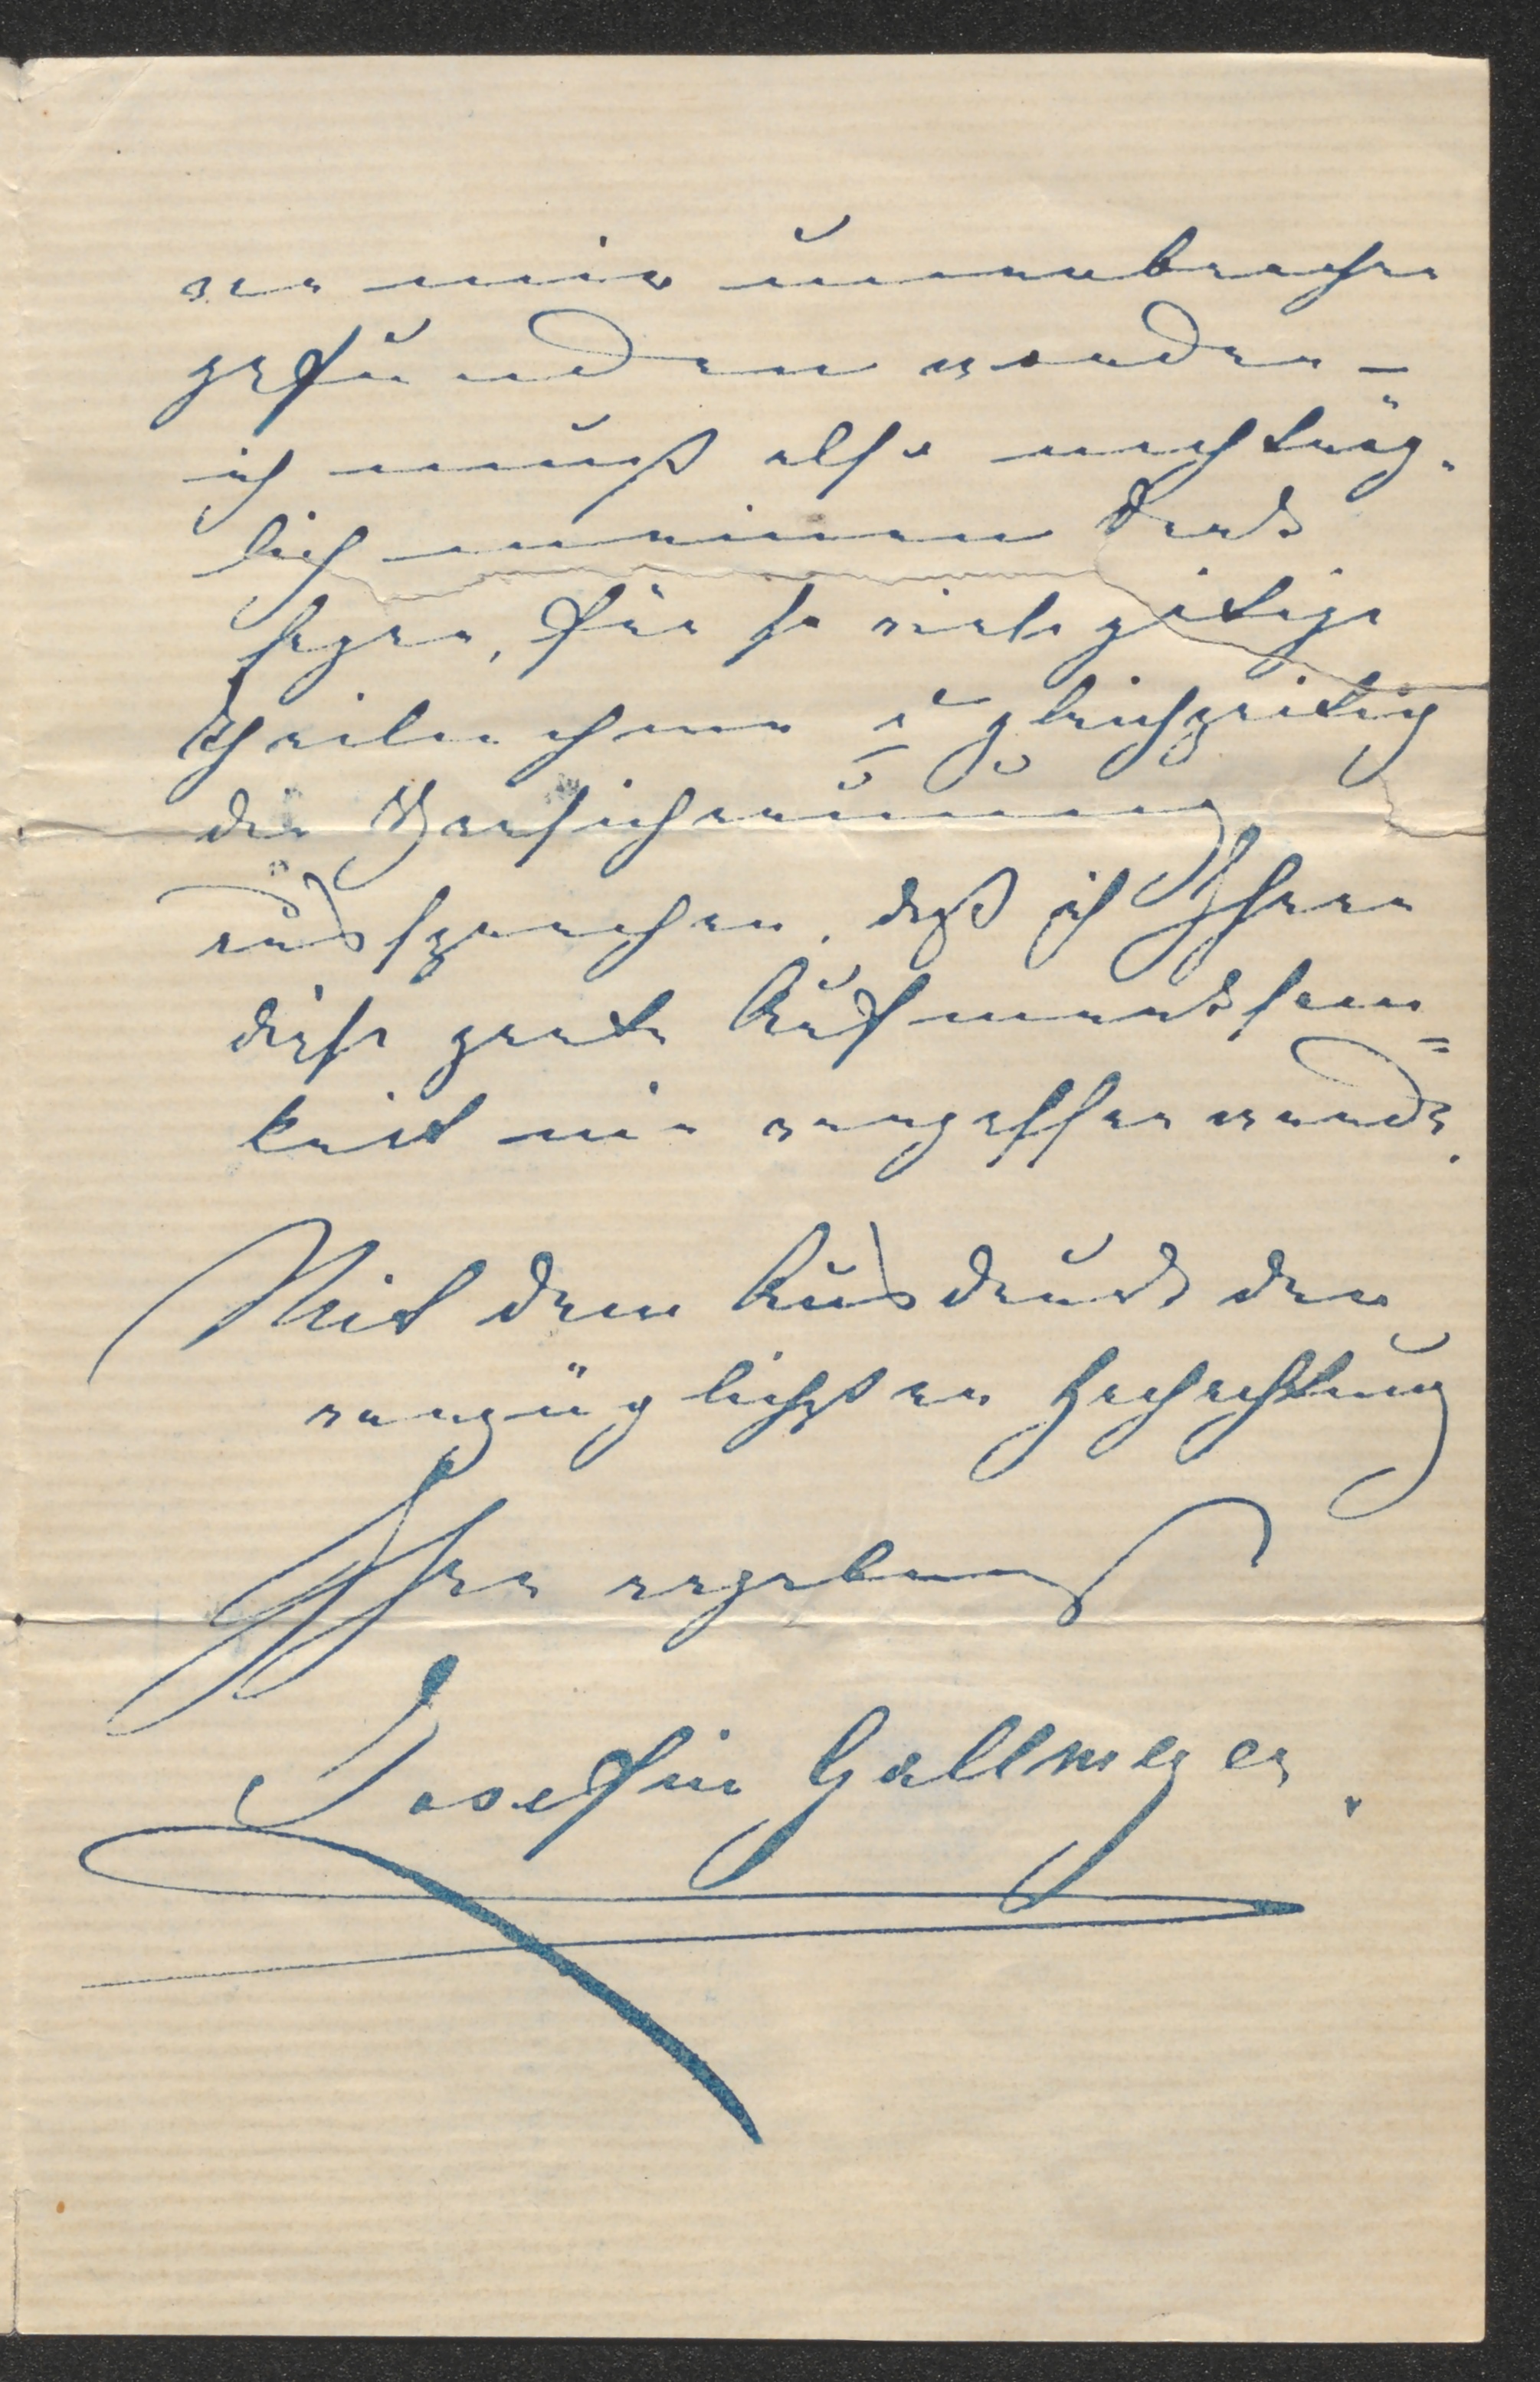 von mir unerbrochen
gefunden worden –
ich muß also nachträg-
lich meinen Dank
sagen, für so viele gütige
Theilnahme u gleichzeitig
die Versicherung
aussprechen, daß ich Ihnen
diese zarte Aufmerksam=
keit nie vergessen werde.
Mit dem Ausdruck der
vorzüglichsten Hochachtung
Ihre ergebenst
Josefin Gallmeyer.